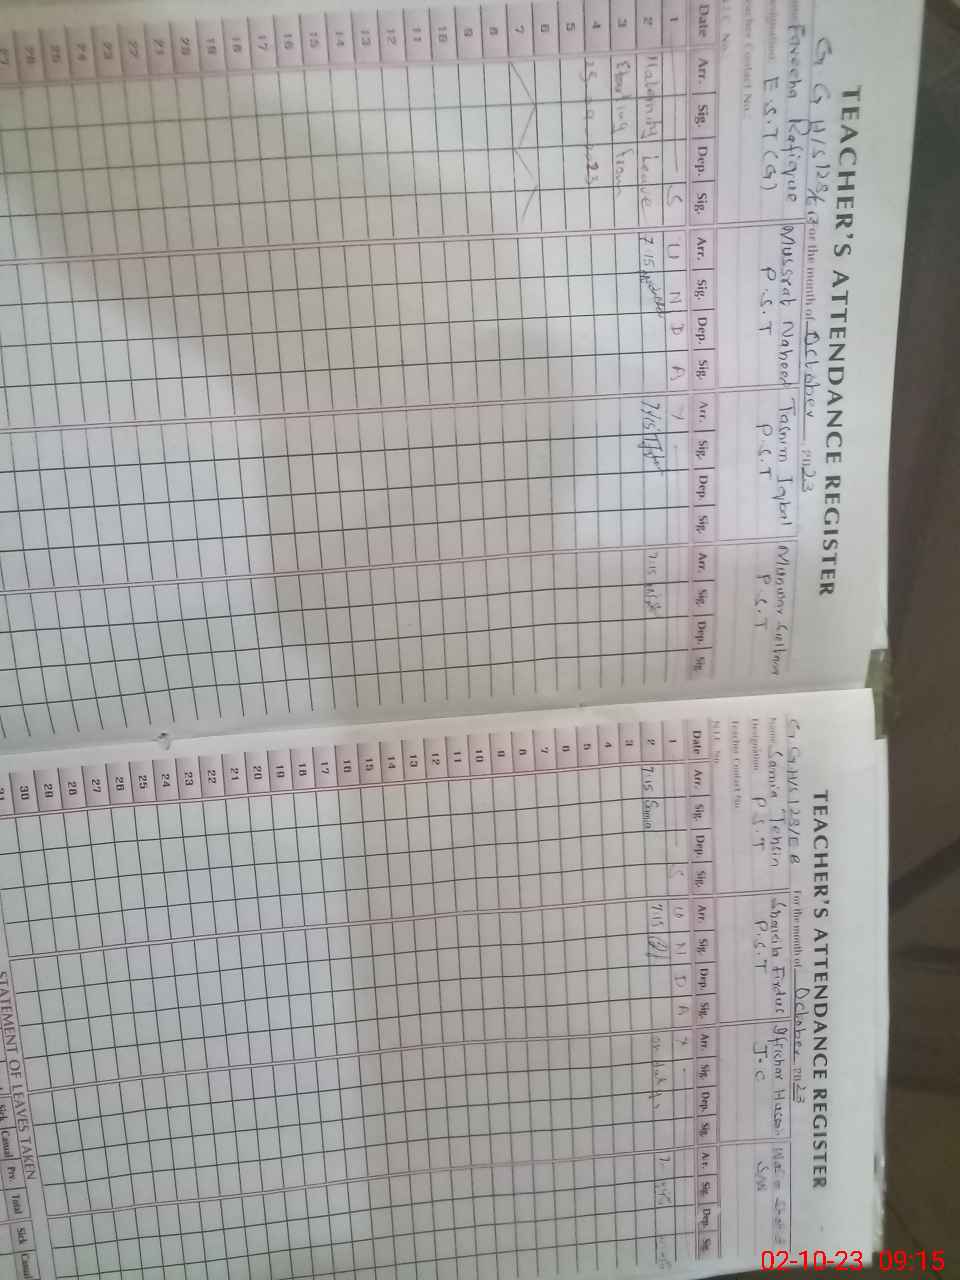 TEACHER'S ATTENDANCE REGISTER
G G H/S 123/EB For the month of October 2023
Name Faveeha Rafique Mussrat Naheed Tasnim Iqbal Munawar Sultana
Designation E.S.T (G) P.S.T P.S.T P.S.T
Teacher Contact No.
N.I.C. No.
Date Arr. Sig. Dep. Sig. Arr. Sig. Dep. Sig. Arr. Sig. Dep. Sig. Arr. Sig. Dep. Sig.
1 — S U N D A Y -
2 Maternity Leave 7:15 7:15 7:15
3 Starting from
4 2023
5
6
7
8
9
10
11
12
13
14
15
16
17
18
19
20
21
22
23
24
25
26
27
TEACHER'S ATTENDANCE REGISTER
G G H/S 123/E B For the month of October 2023
Name Samia Tehsin Firdus Iftichar Hussain
Designation P.S.T P.S.T J.C S/W
Teacher Contact No.
N.I.C. No.
Date Arr. Sig. Dep. Sig. Arr. Sig. Dep. Sig. Arr. Sig. Dep. Sig. Arr. Sig. Dep. Sig.
1 - S U N D A Y -
2 7:15 Samia 7:15
3
4
5
6
7
8
9
10
11
12
13
14
15
16
17
18
19
20
21
22
23
24
25
26
27
28
29
30
31
STATEMENT OF LEAVES TAKEN
Sick Casual Prv. Total Sick Casual
02-10-23 09:15